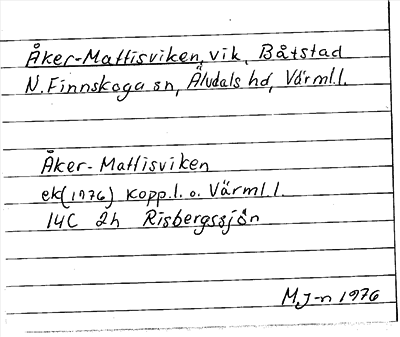 Åker-Mattisviken, vik, Båtstad
N. Finnskoga sn, Älvdals hd, Värml.l.
Åker-Mattisviken
ek(1976) Kopp.l. o. Värml.l.
14C 2h Risbergssjön
M.J-n 1976